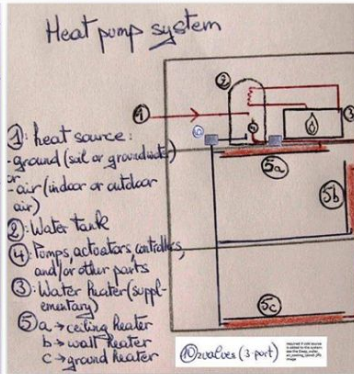 Heat pump system
②
①
③
⑩
④
5a
5b
5c
①: heat source:
-ground (soil or groundwater)
or
-air (indoor or outdoor
air)
②: Water tank
④ Pumps, actuators, controllers,
and/or other parts
③: Water heater (suppl-
ementary)
⑤ a → ceiling heater
b → wall heater
c → ground heater
⑩ valves (3-port)